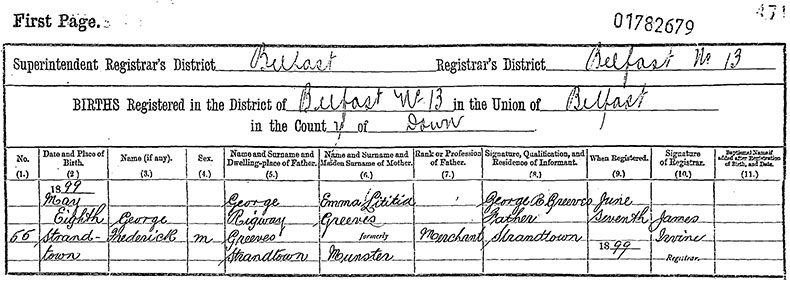 First Page.
01782679
471
Superintendent Registrar's District Belfast Registrar's District Belfast No 13
BIRTHS Registered in the District of Belfast No 13 in the Union of Belfast
in the County of Down
No. Date and Place of Birth. Name (if any). Sex. Name and Surname and Dwelling-place of Father. Name and Surname and Maiden Surname of Mother. Rank or Profession of Father. Signature, Qualification, and Residence of Informant. When Registered. Signature of Registrar. Baptismal Name if added after Registration of Birth, and Date.
(1.) (2) (3.) (4.) (5.) (6.) (7.) (8.) (9.) (10.) (11.)
1899
May George Emma Lititia George R Greeves June
Eighth George Rigway Greeves Father Seventh James
56 Strand- Frederick m Greeves formerly Merchant Strandtown 1899 Irvine
town Strandtown Munster Registrar.